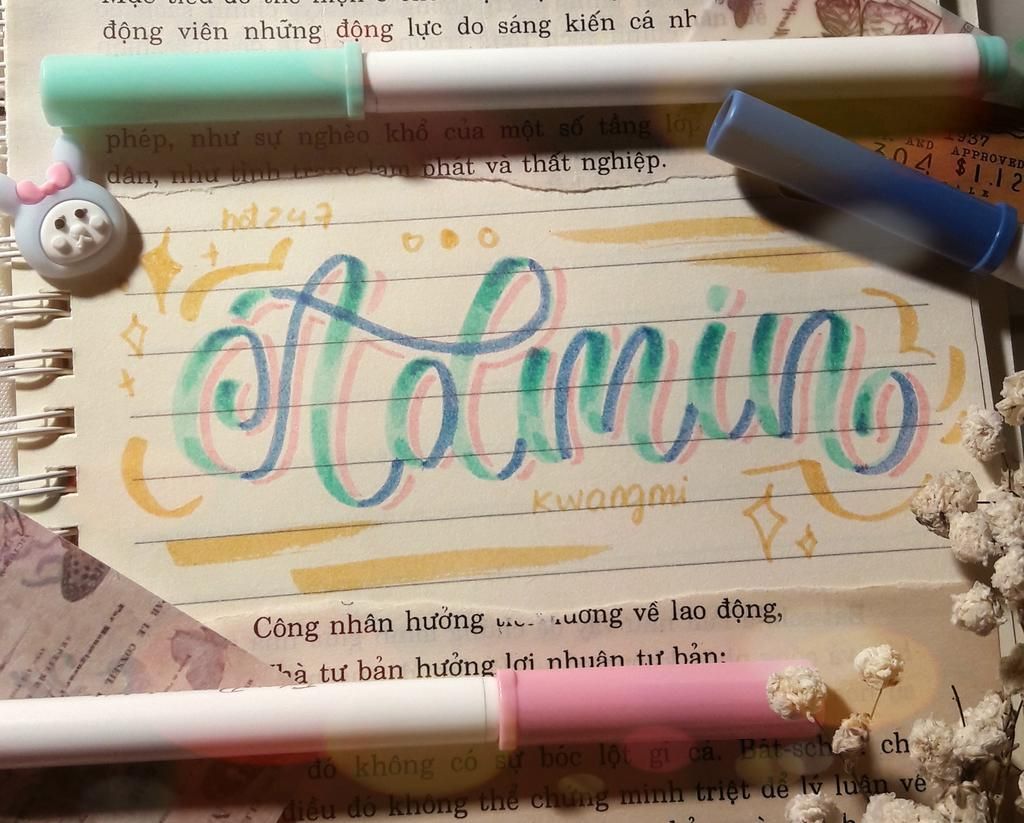 động viên những động lực do sáng kiến cá
phép, như sự nghèo khổ của một số tầng lớp
AND APPROVED
304 $1.12
dân, như tình trạng lạm phát và thất nghiệp.
hot247
Admin
kwangmi
Công nhân hưởng lương về lao động,
tư bản hưởng lợi nhuận tư bản:
đó không có sự bóc lột gì cả.
điều đó không thể chứng minh triệt để lý luận về